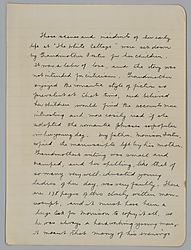 These scenes and incidents of her early
life at "The White Cottage" were set down
by Grandmother Foster for her children.
It was a labor of love, and the story was
not intended for outsiders. Grandmother
enjoyed the romantic style of fiction so
prevalent at that time, and believed
her children would find the accounts more
interesting and more easily read if she
adopted the romantic phrases popular
in her young day. My father, Morrison Foster
copied the manuscript left by his mother.
Grandmother's writing was small and
cramped, and her spelling, like that of
so many very well-educated young
ladies of her day, was very faulty. There
are 138 pages of this closely written man-
uscript, and it must have been a
huge task for Morrison to copy it all, as
he was always a hard-working young man.
It meant that many of his evenings